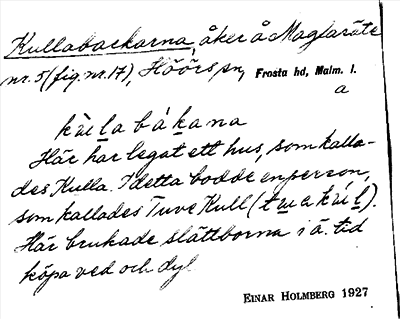 Kullabackarna, åker å Maglasäte
nr. 5 (fig. nr. 17), Höörs sn, Frosta hd, Malm. l.
a
kùl̲a bák̲ana
Här har legat ett hus, som kalla-
des Kulla. I detta bodde en person,
som kallades Tuve Kull (
Här brukade slättborna i ä. tid
köpa ved och dyl.
EINAR HOLMBERG 1927